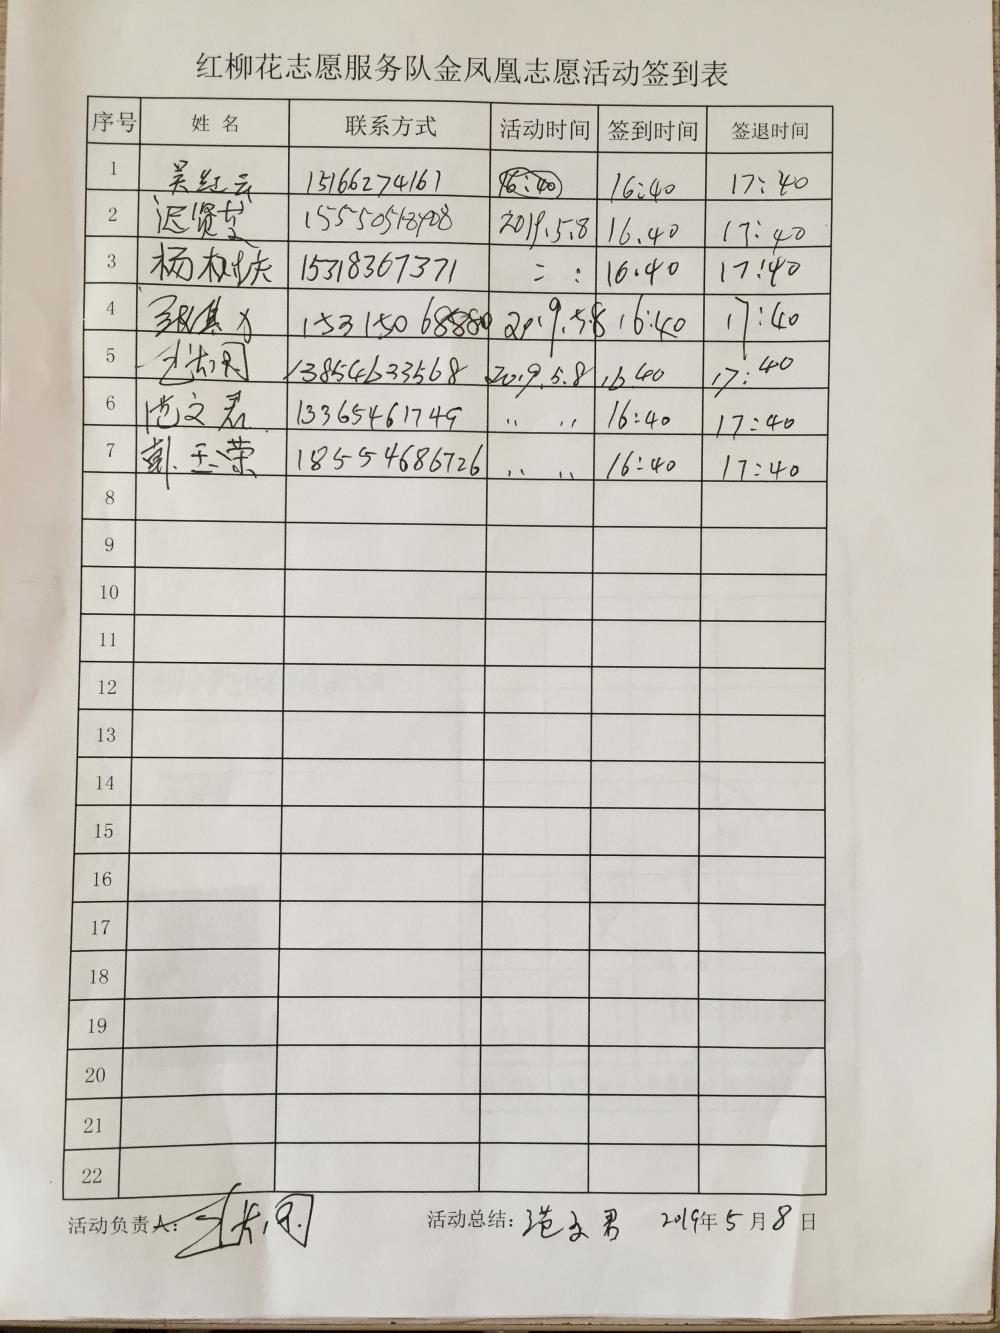 红柳花志愿服务队金凤凰志愿活动签到表
序号 姓 名 联系方式 活动时间 签到时间 签退时间
1 吴红云 15166274161 16:40 16:40 17:40
2 迟贤 2019.5.8 16.40 17:40
3 杨 15318367371 16.40 17:40
4 2019.5.8 16:40 17:40
5 13854633568 2019.5.8 16.40 17:40
6 范文君 13365461749 〃 〃 16:40 17:40
7 戴玉荣 18554686726 〃 〃 16:40 17:40
8
9
10
11
12
13
14
15
16
17
18
19
20
21
22
活动负责人: 活动总结: 范文君 2019年5月8日